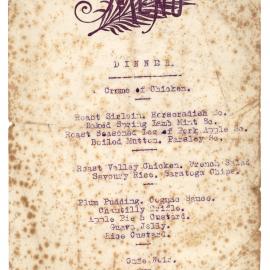 MENU
DINNER.
Creme of Chicken.
Roast Sirloin, Horseradish So.
Baked Spring Lamb Mint So.
Roast Seasoned Leg of Pork Apple So.
Boiled Mutton, Parsley So.
Roast Valley Chicken, French Salad
Savoury Rice, Saratoga Chips.
Plum Pudding, Cognac Sauce.
Chantilly Trifle.
Apple Pie & Custard.
Guava Jelly.
Rice Custard.